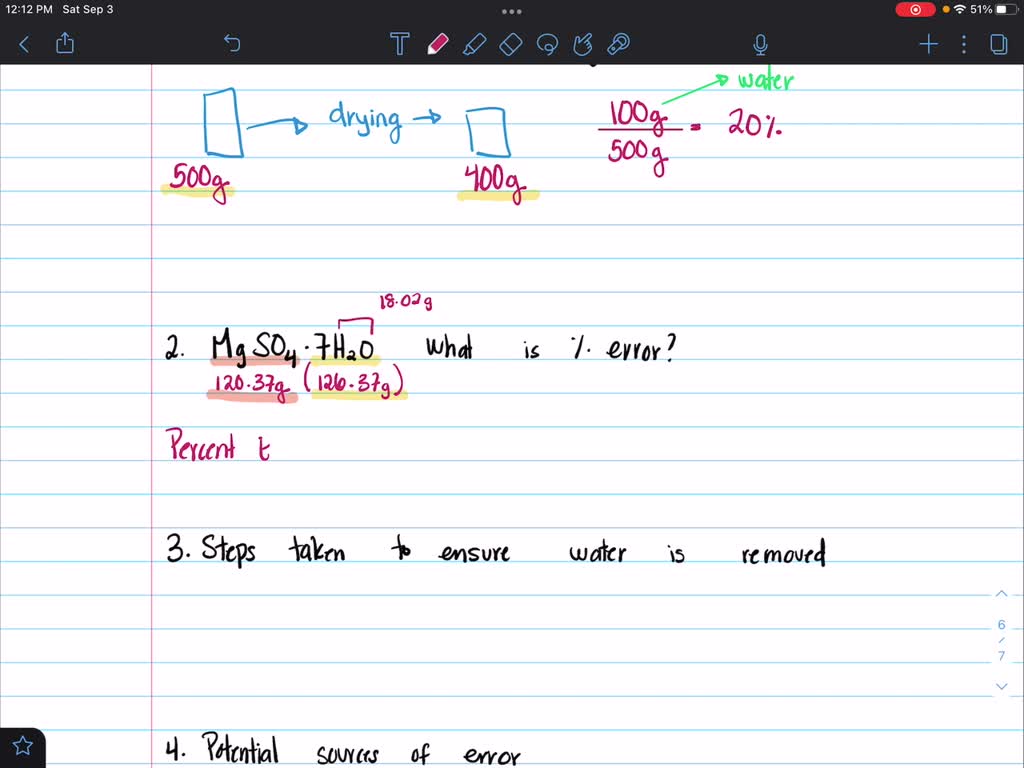 12:12 PM Sat Sep 3
51%
water
drying
100g
500g
= 20%
500g
400g
18.02g
2. MgSO4·7H2O What is % error?
120.37g (126.37g)
Percent t
3. Steps taken to ensure water is removed
6
7
4. Potential sources of error